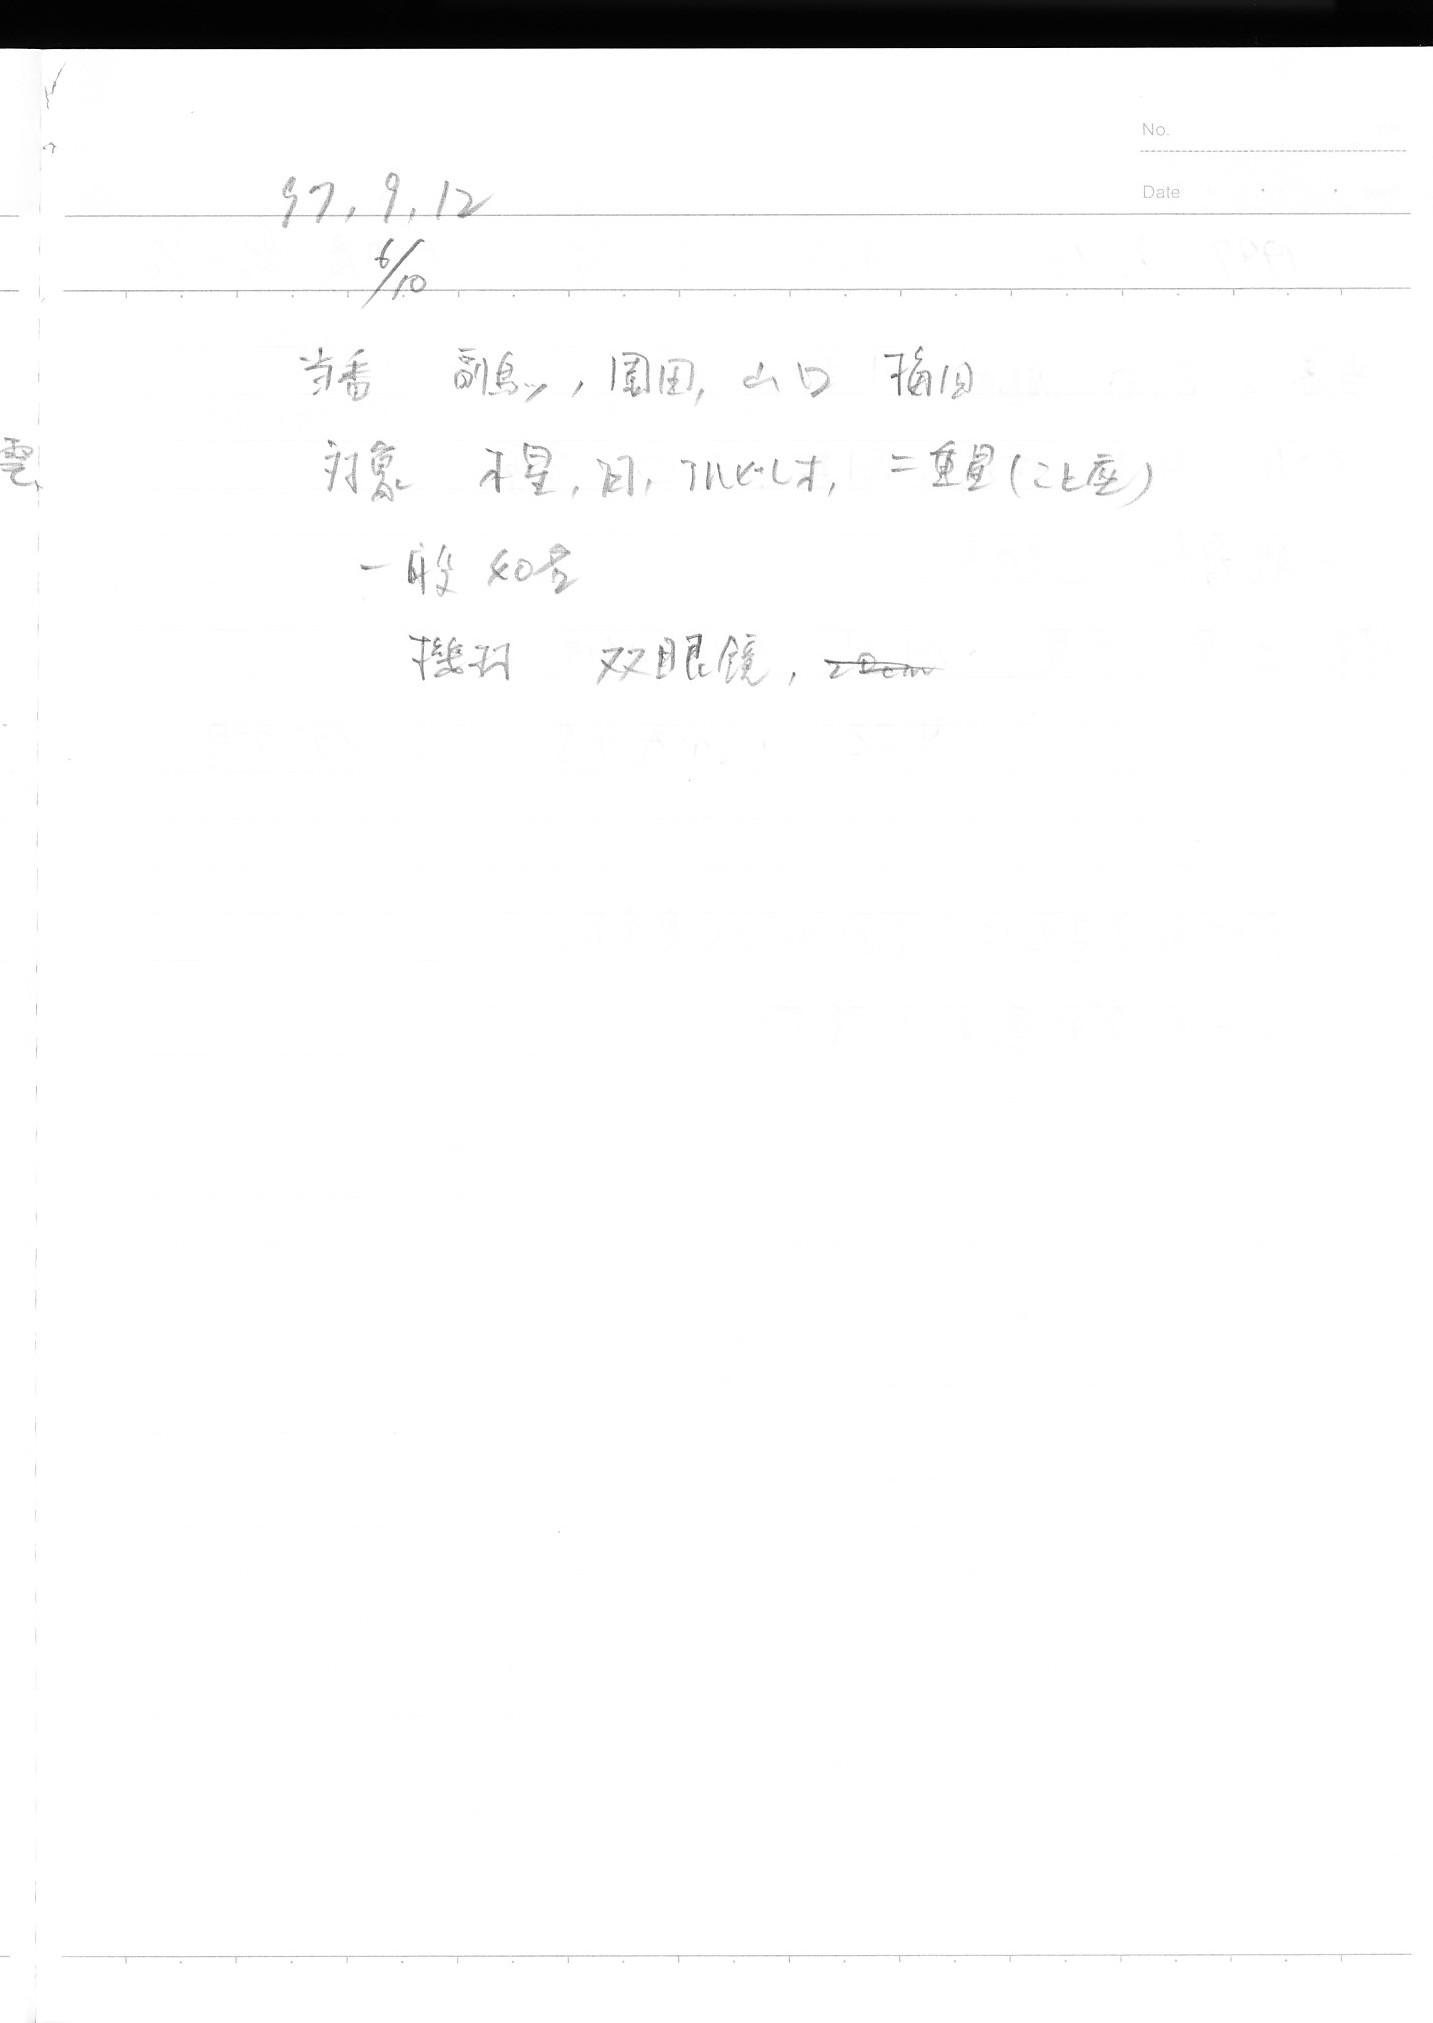 No.
Date
97, 9, 12
6/10
当番 副島, 園田, 山口 梅田
対象 木星, 月, アルビレオ, 二重星(こと座)
一般 40名
機材 双眼鏡, 20cm
雲